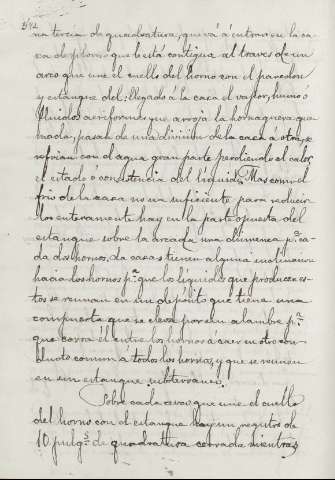 na tercia de quadratura, que vá á entrar en la ca
xa de plomo que está contigua al traves de un
arco que une el cuello del horno con el paredon
y estanque del; llegado á la caxa el vapor, humo ó
fluidos aeriformes que arroja la hornaguera que
mada, pasan de una división de la caxa á otra, se
refrian con el agua gran parte perdiendo el calor,
el estado ó consistencia del liquido. Mas como el
frio de la caxa no sea suficiente para reducir
los enteramente hay en la parte opuesta del
estanque sobre la arcada una chimenea pª. ca
da dos hornos, la caxas tienen alguna inclinacion
hacia los hornos pª. que los líquidos que producen es
tos se reunan en un depósito que tiene una
compuerta que se eleva por un alambre pª.
que corra él entre los hornos a caer en otro con
ducto comun a todos los hornos, y que se reunen
en un estanque subterraneo.
Sobre cada arco que une el cuello
del horno con el estanque hay un registro de
10 pulgs. de quadratura cerrada mientras